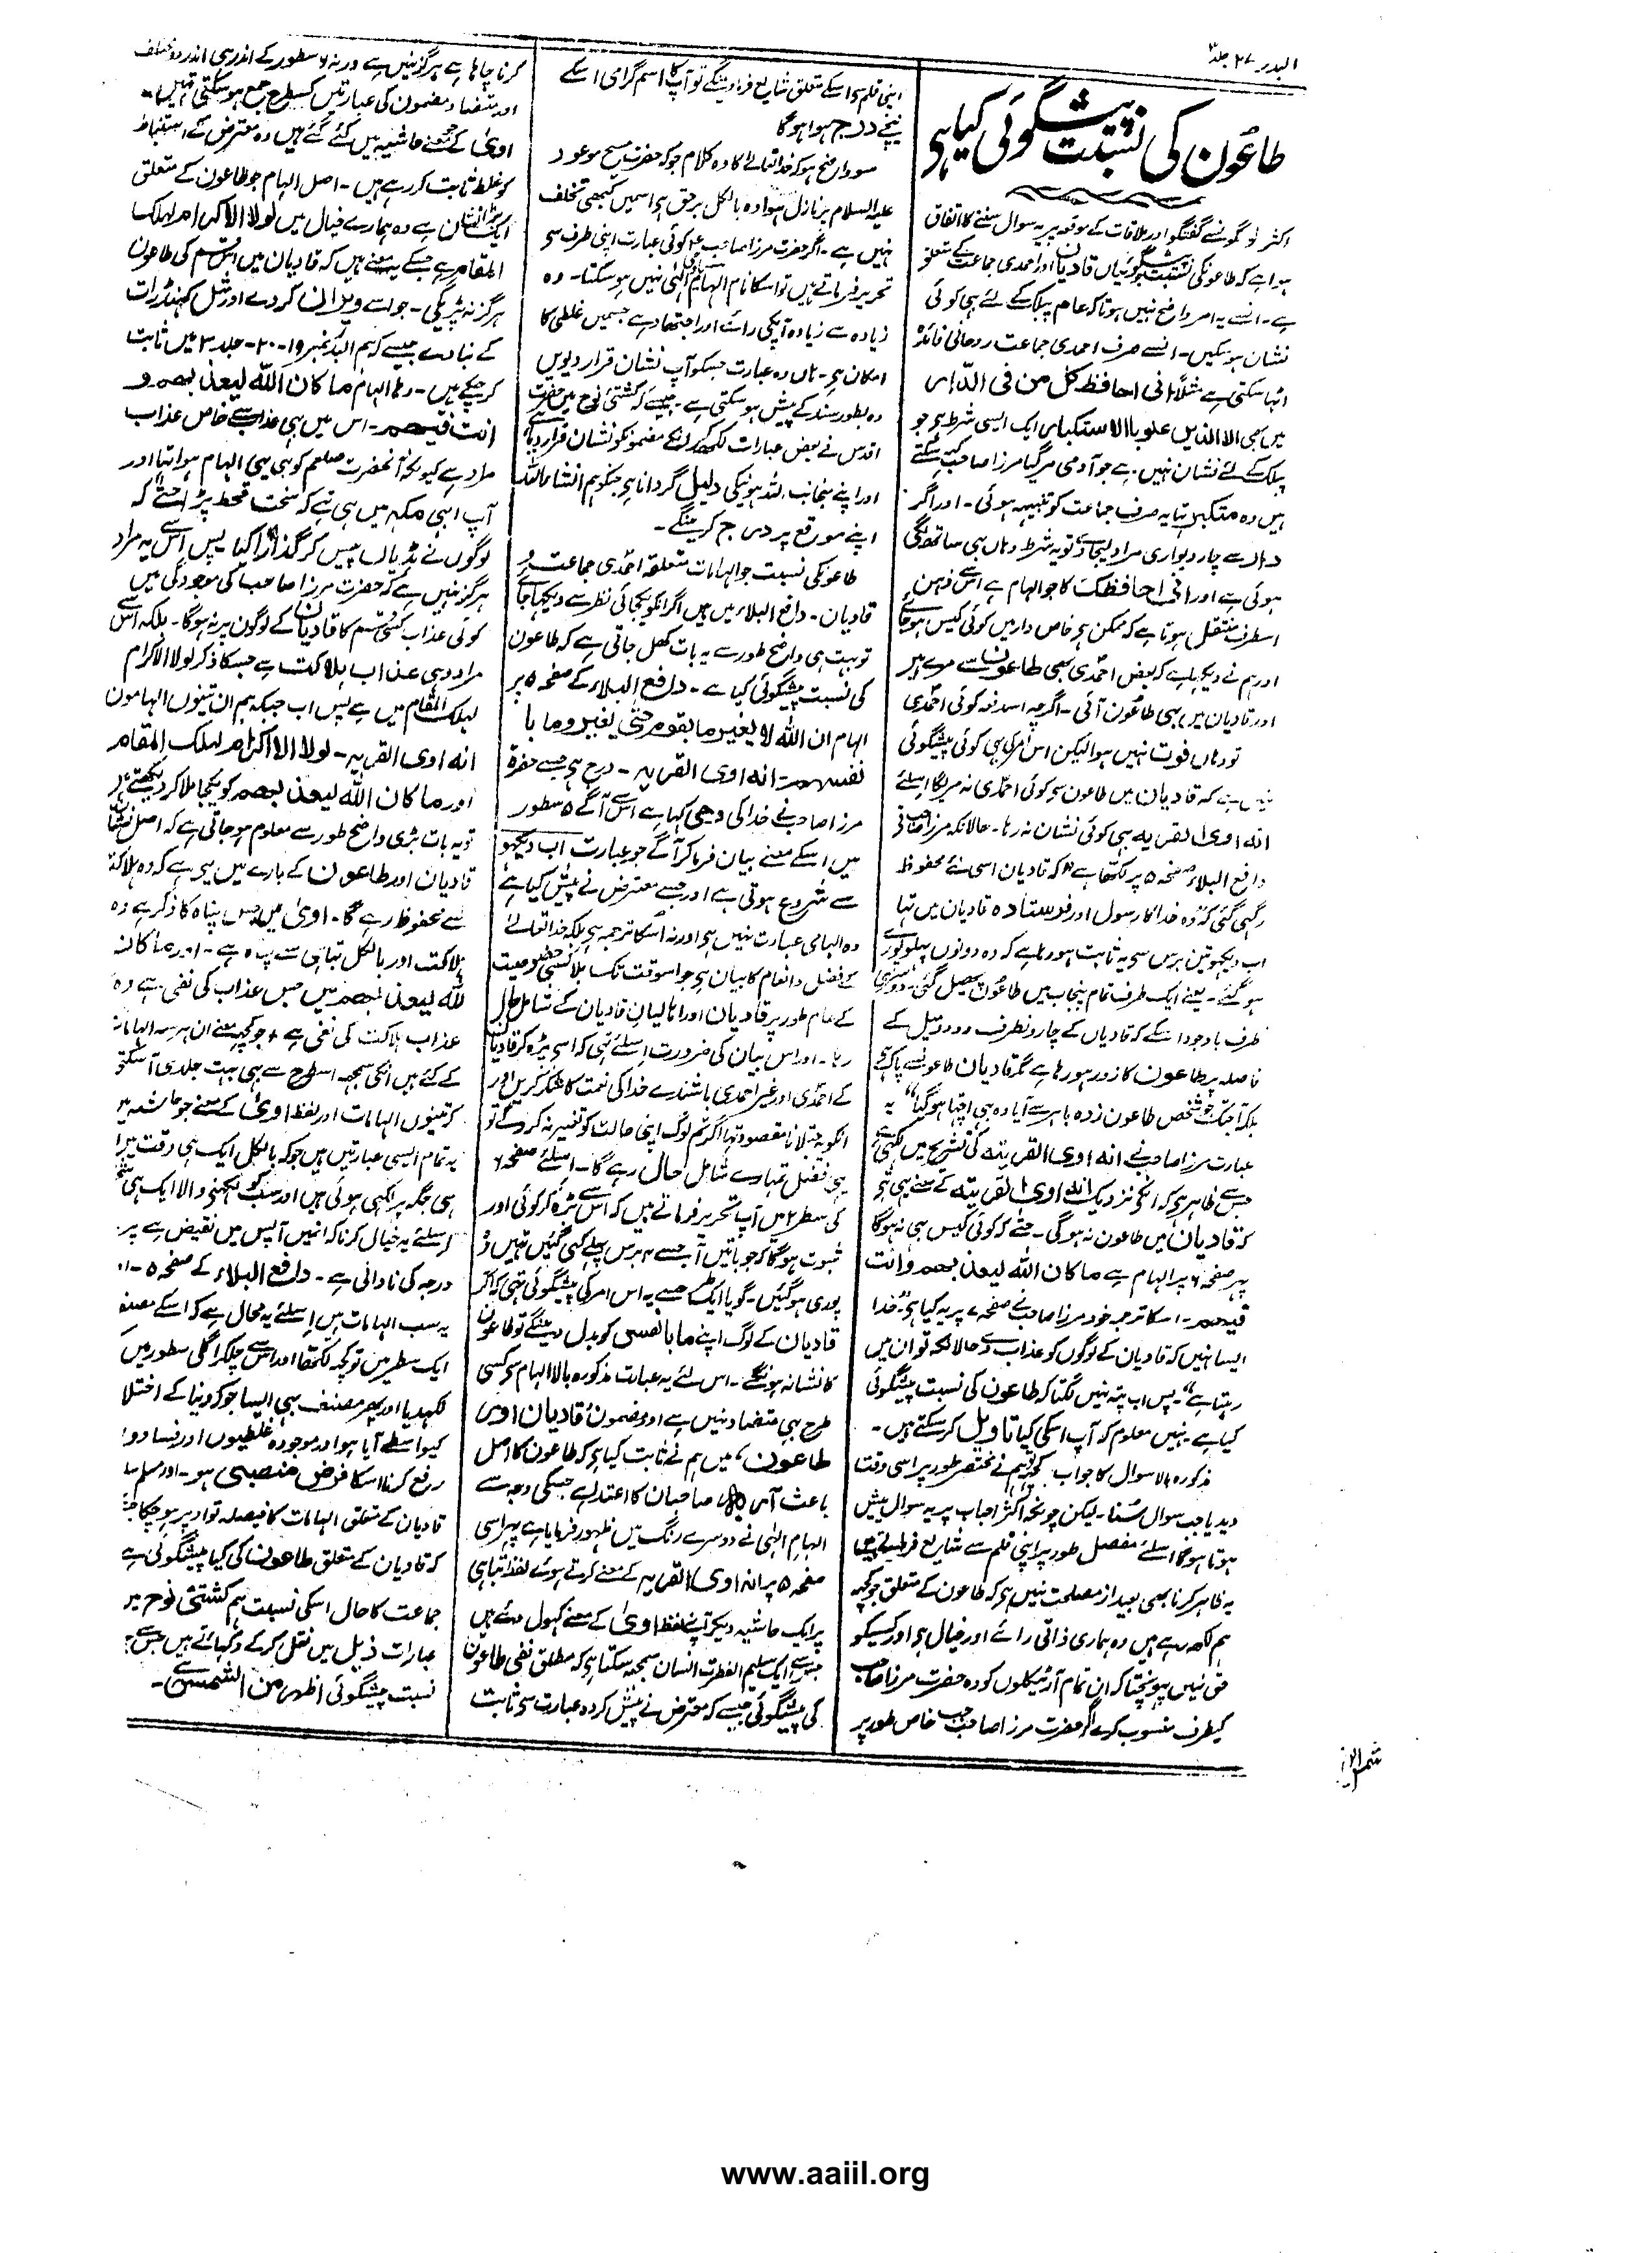 البدر ۲۷ جلد ۳
طاعون کی نسبت پیشگوئی کیا ہی
اکثر لوگوں سے گفتگو اور ملاقات کے موقعہ پر یہ سوال سننے کا اتفاق
ہوا ہے کہ طاعون کی نسبت پیشگوئیاں قادیان اور احمدی جماعت کے متعلق
ہے۔ انسے یہ امر واضح نہیں ہوتا کہ عام پبلک کے لئے ہی کوئی
نشان ہو سکیں۔ انسے صرف احمدی جماعت روحانی فائدہ
اٹھا سکتی ہے مثلاً انی احافظ کل من فی الدار
میں بھی الا الذین علوا بالاستکبار ایک ایسی شرط ہی جو
پبلک کے لئے نشان نہیں ہے جو آدمی مر گیا مرزا صاحب کہہ سکتے
ہیں وہ متکبر تھا یہ صرف جماعت کو تنبیہ ہوئی۔ اور اگر
دار سے چار دیواری مراد لیجاوے تو یہ شرط وہاں بھی ساتھ لگی
ہوئی ہے اور انی احافظک کا جو الہام ہے اس سے ذہن
اسطرف منتقل ہوتا ہے کہ ممکن ہی خاص دار میں کوئی کیس ہو جائے
اور ہم نے دیکھا ہے کہ بعض احمدی بھی طاعون سے مرے ہیں
اور قادیان میں بھی طاعون آئی۔ اگرچہ اسدفعہ کوئی احمدی
تو وہاں فوت نہیں ہوا لیکن اس امر کی ہی کوئی پیشگوئی
نہیں ہے کہ قادیان میں طاعون سے کوئی احمدی نہ مریگا اسلئے
انہ اوی القریہ بھی کوئی نشان نہ رہا۔ حالانکہ مرزا صاحب نے
دافع البلاء صفحہ ۵ پر لکھا ہے "کہ قادیان اسی لئے محفوظ
رکھی گئی کہ وہ خدا کا رسول اور فرستادہ قادیان میں تھا
اب دیکھو تین برس سے یہ ثابت ہو رہا ہے کہ وہ دونوں پہلو پورے
ہو گئے۔ یعنے ایک طرف تمام پنجاب میں طاعون پھیل گئی۔ دوسری
طرف باوجود اسکے کہ قادیاں کے چارونطرف دو دو میل کے
فاصلہ پر طاعون کا زور ہو رہا ہے مگر قادیان طاعون سے پاک ہے
بلکہ آجتک جو شخص طاعون زدہ باہر سے آیا وہ بھی اچھا ہو گیا" یہ
عبارت مرزا صاحب نے انہ اوی القریتہ کی تشریح میں لکھی ہے
جس سے ظاہر ہی کہ انکے نزدیک انہ اوی القریتہ کے معنے یہی تھے
کہ قادیان میں طاعون نہ ہوگی۔ حتے کہ کوئی کیس بھی نہ ہوگا
پھر صفحہ ۶ پر الہام ہے ما کان اللہ لیعذبہم وانت
فیھم۔ اسکا ترجمہ خود مرزا صاحب نے صفحہ ۷ پر یہ کیا ہے "خدا
ایسا نہیں کہ قادیان کے لوگوں کو عذاب دے حالانکہ تو ان میں
رہتا ہے"۔ پس اب پتہ نہیں لگتا کہ طاعون کی نسبت پیشگوئی
کیا ہے۔ نہیں معلوم کہ آپ اسکی کیا تاویل کر سکتے ہیں۔
مذکورہ بالا سوال کا جواب گو ہم نے مختصر طور پر اسی وقت
دیدیا جب سوال سنا۔ لیکن چونکہ اکثر احباب پر یہ سوال پیش
ہوتا ہوگا اسلئے مفصل طور پر اپنی قلم سے شایع
یہ ظاہر کرنا بھی بعید از مصلحت نہیں ہی کہ طاعون کے متعلق جو کچھ
ہم لکھ رہے ہیں وہ ہماری ذاتی رائے اور خیال ہی اور کسیکو
حق نہیں پہونچتا کہ ان تمام آرٹیکلوں کو وہ حضرت مرزا صاحب
کیطرف منسوب کرے اگر حضرت مرزا صاحب خاص طور پر
اپنی قلم سے اسکے متعلق شایع فرماوینگے تو آپکا اسم گرامی اسکے
نیچے درج ہوا ہوگا
سو واضح ہو کہ خدا تعالے کا وہ کلام جو کہ حضرت مسیح موعود
علیہ السلام پر نازل ہوا وہ بالکل برحق ہی اسمیں کبھی تخلف
نہیں ہے۔ اگر حضرت مرزا صاحب کوئی عبارت اپنی طرف سے
تحریر فرماتے ہیں تو اسکا نام الہام الٰہی نہیں ہو سکتا۔ وہ
زیادہ سے زیادہ آپکی رائے اور اجتہاد ہے جسمیں غلطی کا
امکان ہی۔ ہاں وہ عبارت جسکو آپ نشان قرار دیویں
وہ بطور سند کے پیش ہو سکتی ہے۔ جیسے کہ کشتی نوح میں حضرت
اقدس نے بعض عبارات لکھکر انکے مضمونکو نشان قرار دیا ہے
اور اپنے منجانب اللہ ہونیکی دلیل گردانا ہی جنکو ہم انشاءاللہ
اپنے موقع پر درج کرینگے۔
طاعونکی نسبت جو الہامات متعلقہ احمدی جماعت و
قادیان۔ دافع البلاء میں ہیں اگر انکو یکجائی نظر سے دیکھا جائے
تو بہت ہی واضح طور سے یہ بات کھل جاتی ہے کہ طاعون
کی نسبت پیشگوئی کیا ہے۔ دافع البلاء کے صفحہ ۵ پر
الہام ان اللہ لا یغیر ما بقوم حتی یغیروا ما با
نفسہم۔ انہ اوی القریہ۔ درج ہی جسے حضرۃ
مرزا صاحب نے خدا کی وحی کہا ہے اس سے آگے ۵ سطور
میں اسکے معنے بیان فرما کر آگے جو عبارت اب دیکھو
سے شروع ہوتی ہے اور جسے معترض نے پیش کیا ہے
وہ الہامی عبارت نہیں ہی اور نہ اسکا ترجمہ ہی بلکہ خدا تعالے
کے فضل و انعام کا بیان ہی جو اسوقت تک بلا کسی خصوصیت
کے عام طور پر قادیان اور اہالیان قادیان کے شامل حال
رہا۔ اور اس بیان کی ضرورت اسلئے تھی کہ اسے پڑہ کر قادیان
کے احمدی اور غیر احمدی باشندے خدا کی نعمت کا شکر کریں اور
انکو یہ جتلانا مقصود تھا اگر تم لوگ اپنی حالت کو تغیر نہ کروگے تو
یہی فضل تمہارے شامل حال رہے گا۔ اسلئے صفحہ ۶
کی سطر ۲ میں آپ تحریر فرماتے ہیں کہ اس سے بڑہ کر کوئی اور
ثبوت ہوگا کہ جو باتیں آج سے ۴ برس پہلے کہی گئیں تہیں وہ
پوری ہو گئیں۔ گویا ایک طرح سے یہ اس امر کی پیشگوئی تھی کہ اگر
قادیان کے لوگ اپنے ما بانفس کو بدل دینگے تو طاعون
کا نشانہ ہونگے۔ اس لئے یہ عبارت مذکورہ بالا الہام سے کسی
طرح بھی متضاد نہیں ہے اور مضمون "قادیان اور
طاعون" میں ہم نے ثابت کیا ہی کہ طاعون کا اصل
باعث آریہ صاحبان کا اعتدا ہے جسکی وجہ سے
الہام الٰہی نے دوسرے رنگ میں ظہور فرمایا ہے پھر اسی
صفحہ ۵ پر انہ اوی القریہ کے معنے کرتے ہوئے لفظ تباہی
پر ایک حاشیہ دیکر آپنے لفظ اویٰ کے معنے کھول دئے ہیں
جس سے ایک سلیم الفطرت انسان سمجھ سکتا ہی کہ مطلق نفی طاعون
کی پیشگوئی جیسے کہ معترض نے پیش کردہ عبارت سے ثابت
کرنا چاہا ہے ہرگز نہیں ہے ورنہ ۷ سطور کے اندر ہی اندر دو مختلف
اور متضاد مضمون کی عبارتیں کسطرح جمع ہو سکتی تہیں۔
اویٰ کے جو معنے حاشیہ میں کئے گئے ہیں وہ معترض کے استنباط
کو غلط ثابت کر رہے ہیں۔ اصل الہام جو طاعون کے متعلق
ایک بڑا نشان ہے وہ ہمارے خیال میں لولا الاکرام لہلک
المقام ہے جسکے یہ معنے ہیں کہ قادیان میں اس قسم کی طاعون
ہرگز نہ پڑیگی۔ جو اسے ویران کر دے اور مثل کھنڈرات
کے بنا دے جیسے کہ ہم البدر نمبر ۱۹۔۲۰۔ جلد ۳ میں ثابت
کر چکے ہیں۔ رہا الہام ما کان اللہ لیعذبہم و
انت فیہم۔ اس میں بھی عذاب سے خاص عذاب
مراد ہے کیونکہ آنحضرت صلعم کو بھی یہی الہام ہوا تھا اور
آپ ابھی مکہ میں ہی تھے کہ سخت قحط پڑا حتے کہ
لوگوں نے ہڈیاں پیس کر گذارا کیا پس اس سے یہ مراد
ہرگز نہیں ہے کہ حضرت مرزا صاحب کی موجودگی میں
کوئی عذاب کسی قسم کا قادیان کے لوگوں پر نہ ہوگا۔ بلکہ اس سے
مراد وہی عذاب ہلاکت ہے جسکا ذکر لولا الاکرام
لہلک المقام میں ہے پس اب جبکہ ہم ان تینوں الہامون
انہ اوی القریہ۔ لولا الاکرام لہلک المقام
اور ما کان اللہ لیعذبہم کو یکجا ملا کر دیکھتے ہیں
تو یہ بات بڑی واضح طور سے معلوم ہو جاتی ہے کہ اصل نشان
قادیان اور طاعون کے بارے میں یہی ہے کہ وہ ہلاکت
سے محفوظ رہے گا۔ اویٰ میں جس پناہ کا ذکر ہے وہ
ہلاکت اور بالکل تباہی سے پناہ ہے۔ اور ما کان
اللہ لیعذبہم میں جس عذاب کی نفی ہے وہ
عذاب ہلاکت کی نفی ہے + جو کچھ معنے ان ہر سہ الہامات
کے کئے ہیں انکی سمجھ اسطرح سے بھی بہت جلدی آ سکتی
کہ تینوں الہامات اور لفظ اویٰ کے معنے جو حاشیہ میں
یہ تمام ایسی عبارتیں ہیں جو کہ بالکل ایک ہی وقت میں
ہی جگہ پر لکھی ہوئی ہیں اور سب کو لکھنے والا ایک ہی
اسلئے یہ خیال کرنا کہ انمیں آپس میں نقیض ہے پر
درجہ کی نادانی ہے۔ دافع البلاء کے صفحہ ۵۔
یہ سب الہامات ہیں اسلئے یہ محال ہے کہ اسکے مصنف
ایک سطر میں تو کچھ لکھتا اور اس سے چلکر اگلی سطور میں
لکھدیا اور پھر مصنف بھی ایسا جو کہ دنیا کے اختلا
کیواسطے آیا ہو اور موجودہ غلطیوں اور فسادوں
رفع کرنا اسکا فرض منصبی ہو۔ اور
قادیان کے متعلق الہامات کا فیصلہ تو اوپر ہو چکا
کہ قادیان کے متعلق طاعون کی کیا پیشگوئی ہے
جماعت کا حال اسکی نسبت ہم کشتی نوح میں
عبارات ذیل میں نقل کر کے دکھاتے ہیں جس سے
نسبت پیشگوئی اظہر من الشمس ہے۔
www.aaiil.org